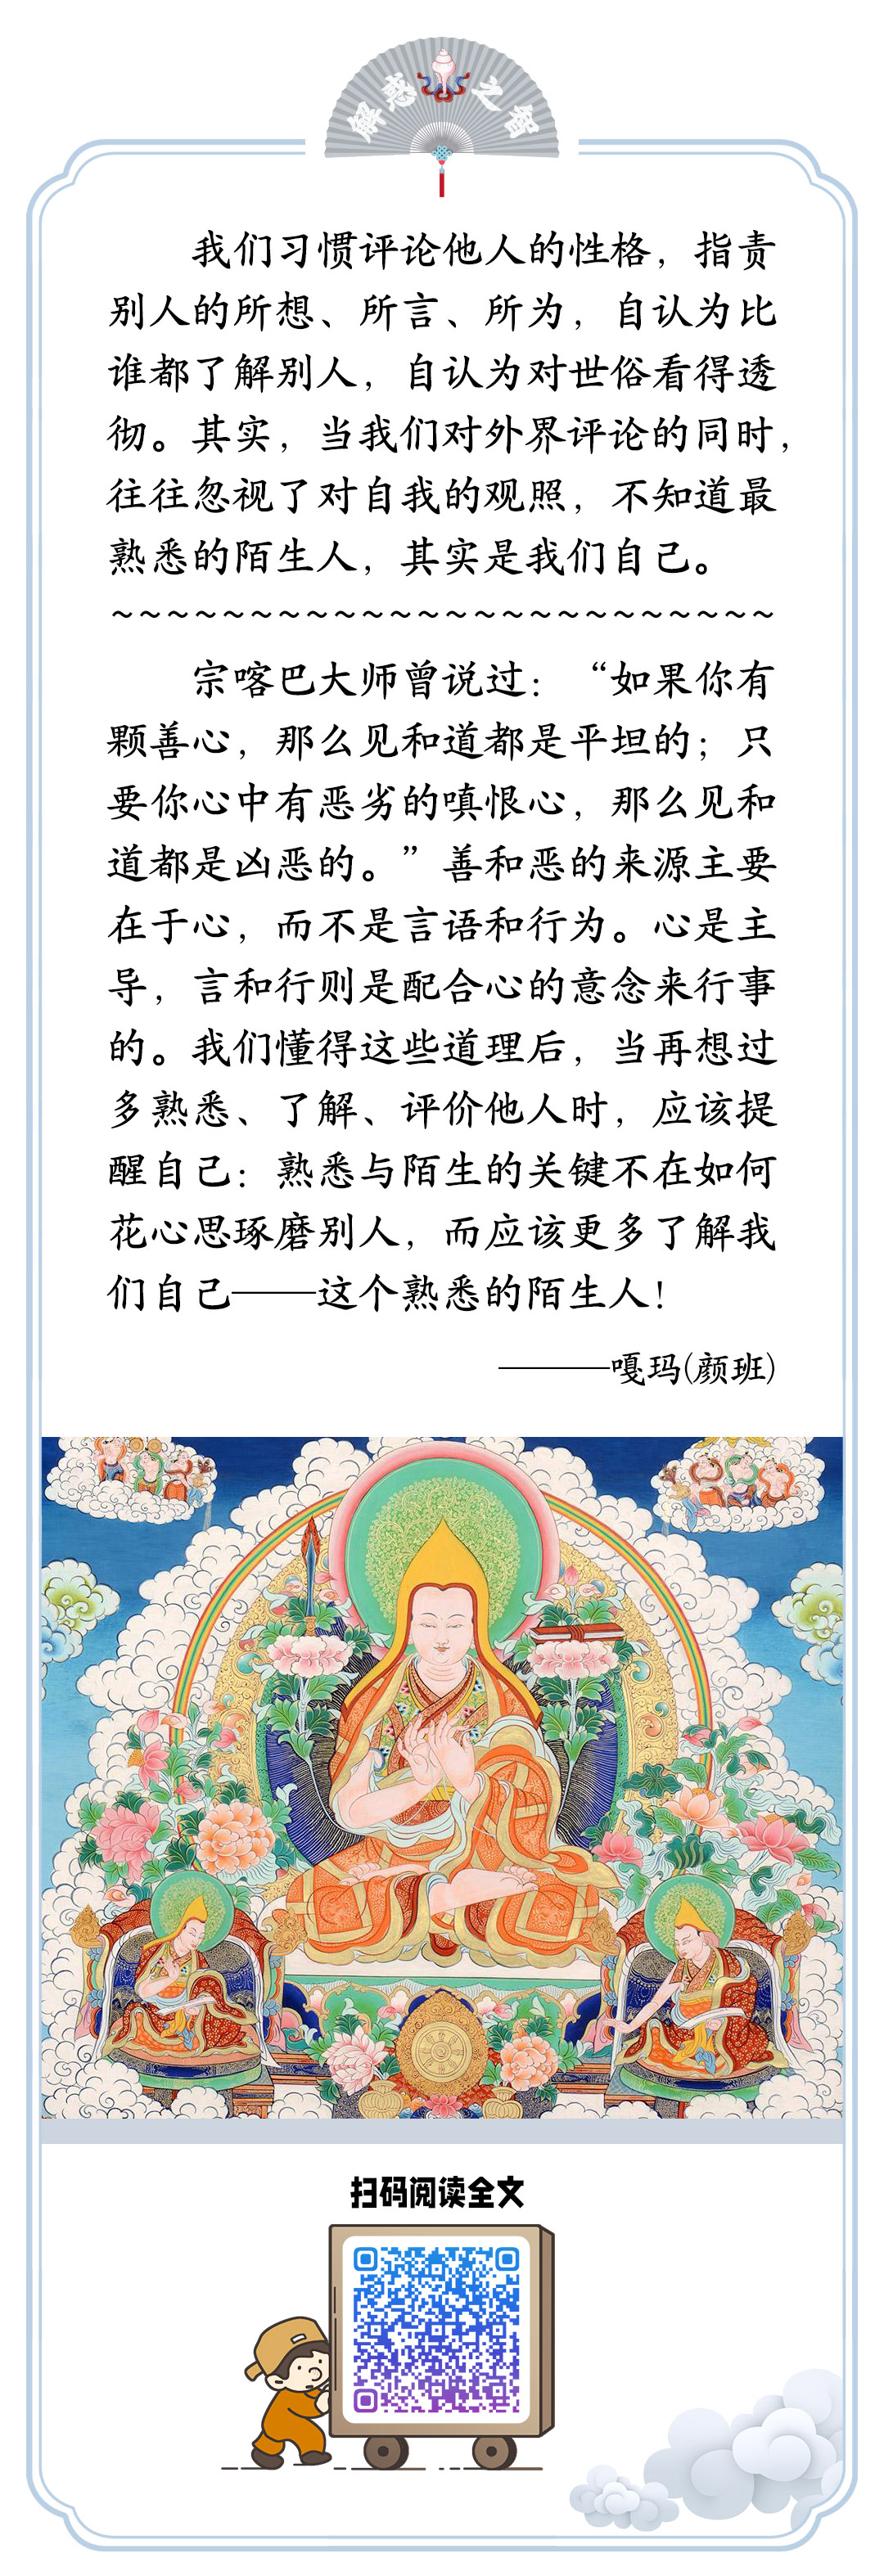 解惑之智
我们习惯评论他人的性格，指责
别人的所想、所言、所为，自认为比
谁都了解别人，自认为对世俗看得透
彻。其实，当我们对外界评论的同时，
往往忽视了对自我的观照，不知道最
熟悉的陌生人，其实是我们自己。
~~~~~~~~~~~~~~~~~~~~~~~~
宗喀巴大师曾说过：“如果你有
颗善心，那么见和道都是平坦的；只
要你心中有恶劣的嗔恨心，那么见和
道都是凶恶的。”善和恶的来源主要
在于心，而不是言语和行为。心是主
导，言和行则是配合心的意念来行事
的。我们懂得这些道理后，当再想过
多熟悉、了解、评价他人时，应该提
醒自己：熟悉与陌生的关键不在如何
花心思琢磨别人，而应该更多了解我
们自己——这个熟悉的陌生人！
———嘎玛(颜班)
扫码阅读全文